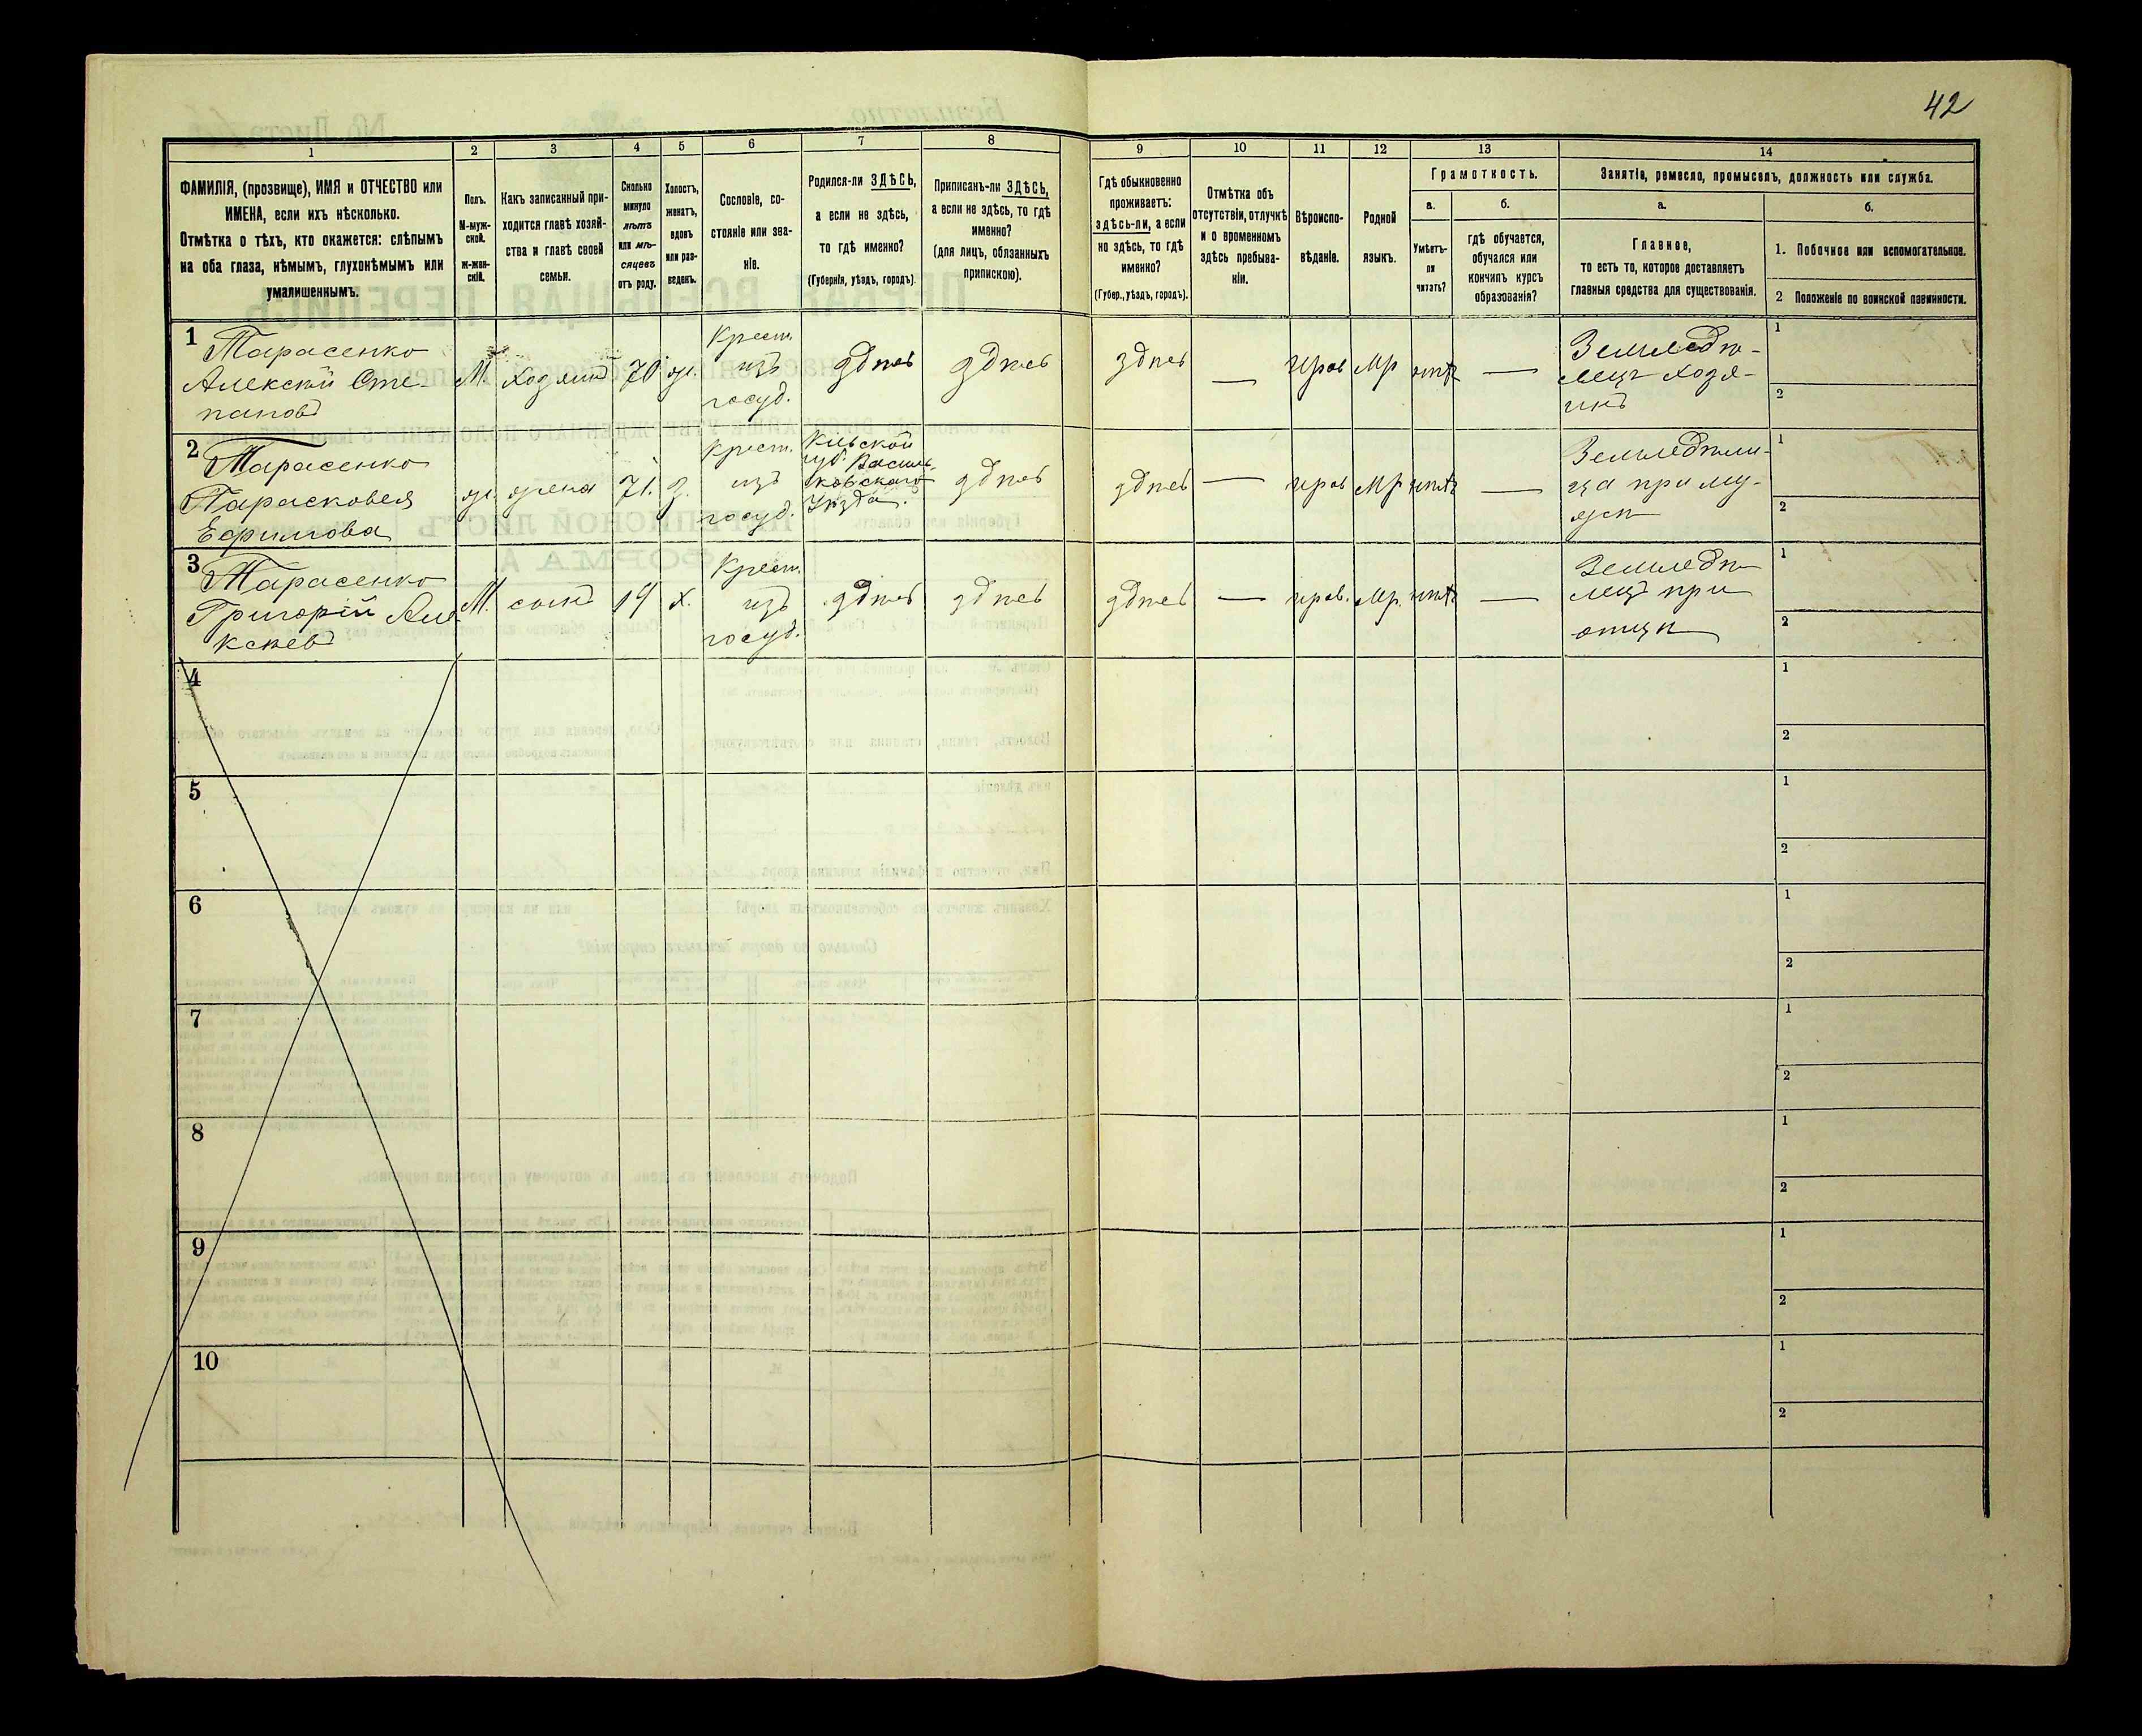 42
1
2
3
4
5
6
7
8
9
10
11
12
13
14
ФАМИЛІЯ, (прозвище), ИМЯ и ОТЧЕСТВО или
ИМЕНА, если ихъ нѣсколько.
Отмѣтка о тѣхъ, кто окажется: слѣпымъ
на оба глаза, нѣмымъ, глухонѣмымъ или
умалишеннымъ.
Полъ.
М-муж-
ской.
ж-жен-
скій.
Какъ записанный при-
ходится главѣ хозяй-
ства и главѣ своей
семьи.
Сколько
минуло
лѣтъ
или мѣ-
сяцевъ
отъ роду.
Холостъ,
женатъ,
вдовъ
или раз-
веденъ.
Сословіе, со-
стояніе или зва-
ніе.
Родился-ли ЗДѢСЬ,
а если не здѣсь,
то гдѣ именно?
(Губернія, уѣздъ, городъ).
Приписанъ-ли ЗДѢСЬ,
а если не здѣсь, то гдѣ
именно?
(для лицъ, обязанныхъ
припискою).
Гдѣ обыкновенно
проживаетъ:
здѣсь-ли, а если
не здѣсь, то гдѣ
именно?
(Губер., уѣздъ, городъ).
Отмѣтка объ
отсутствіи, отлучкѣ
и о временномъ
здѣсь пребыва-
ніи.
Вѣроиспо-
вѣданіе.
Родной
языкъ.
Грамотность.
а.
Умѣетъ-
ли
читать?
б.
гдѣ обучается,
обучался или
кончилъ курсъ
образованія?
Занятіе, ремесло, промыселъ, должность или служба.
а.
Главное,
то есть то, которое доставляетъ
главныя средства для существованія.
б.
1. Побочное или вспомогательное.
2 Положеніе по воинской повинности.
1
Тарасенко
Алексѣй Сте-
пановъ
М.
хозяинъ
70
ж.
Крест.
изъ
госуд.
здѣсь
здѣсь
здѣсь
—
прав
Мр
нѣтъ
—
Земледѣ-
лецъ хозя-
инъ
1
2
2
Тарасенко
Парасковея
Ефимова
ж.
жена
71.
з.
Крест.
изъ
госуд.
Кіевской
губ. Василь-
ковскаго
Уѣзда.
здѣсь
здѣсь
—
прав
Мр
нѣтъ
—
Земледѣли-
ца при му-
жѣ
1
2
3
Тарасенко
Григорій Але-
ксѣевъ
М.
сынъ
19
х.
Крест.
изъ
госуд.
здѣсь
здѣсь
здѣсь
—
прав.
Мр.
нѣтъ
—
Земледѣ-
лецъ при
отцѣ
1
2
4
1
2
5
1
2
6
1
2
7
1
2
8
1
2
9
1
2
10
1
2